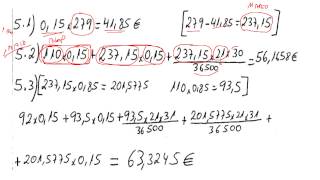 5.1) 0,15×279=41,85€ [279-41,85=237,15]
5.2) 110×0,15 + 237,15×0,15 + 237,15×21×30 / 36500 =56,1658€
5.3) [237,15×0,85=201,5775 110×0,85=93,5]
92×0,15 + 93,5×0,15 + 93,5×21×31 / 36500 + 201,5775×21×31 / 36500 +
+201,5775×0,15 = 63,3245€